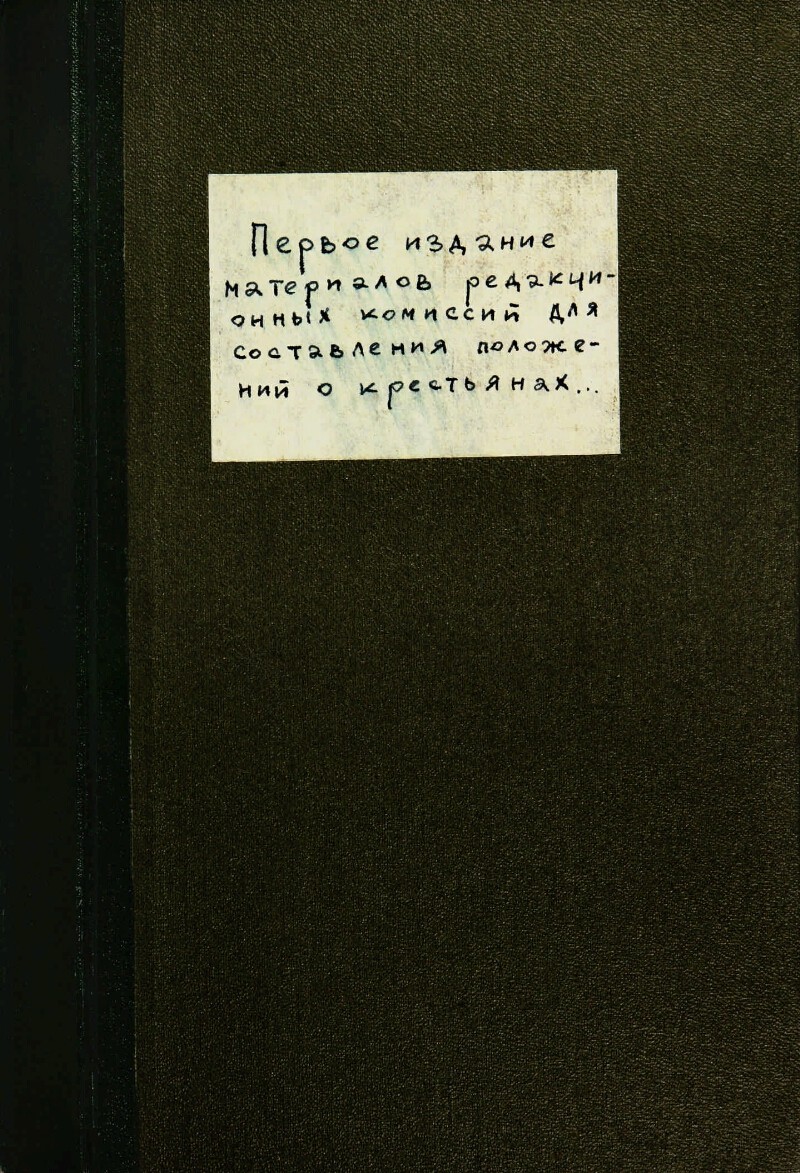 Первое издание
материалов редакци-
онных комиссий для
составления положе-
ний о крестьянах...